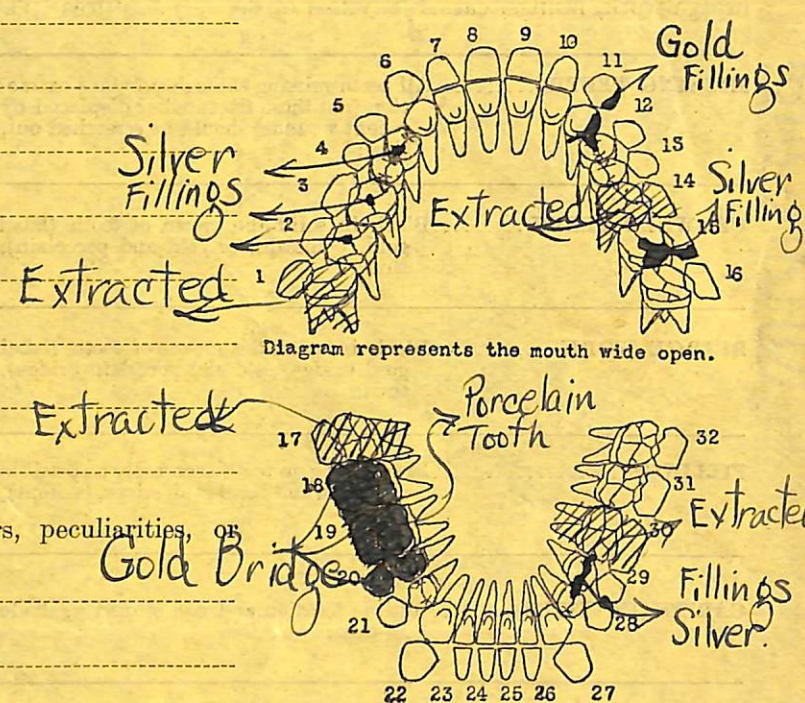 7 8 9 10
6 11 Gold
Fillings
5 12
Silver
Fillings
4 13
3 14
Extracted
Silver
Filling
2 15
Extracted 1 16
Diagram represents the mouth wide open.
Extracted
Porcelain
Tooth
17 32
18 31
Extracted
rs, peculiarities, or
19 30
Gold Bridge
20 29
Fillings
Silver.
21 28
22 23 24 25 26 27